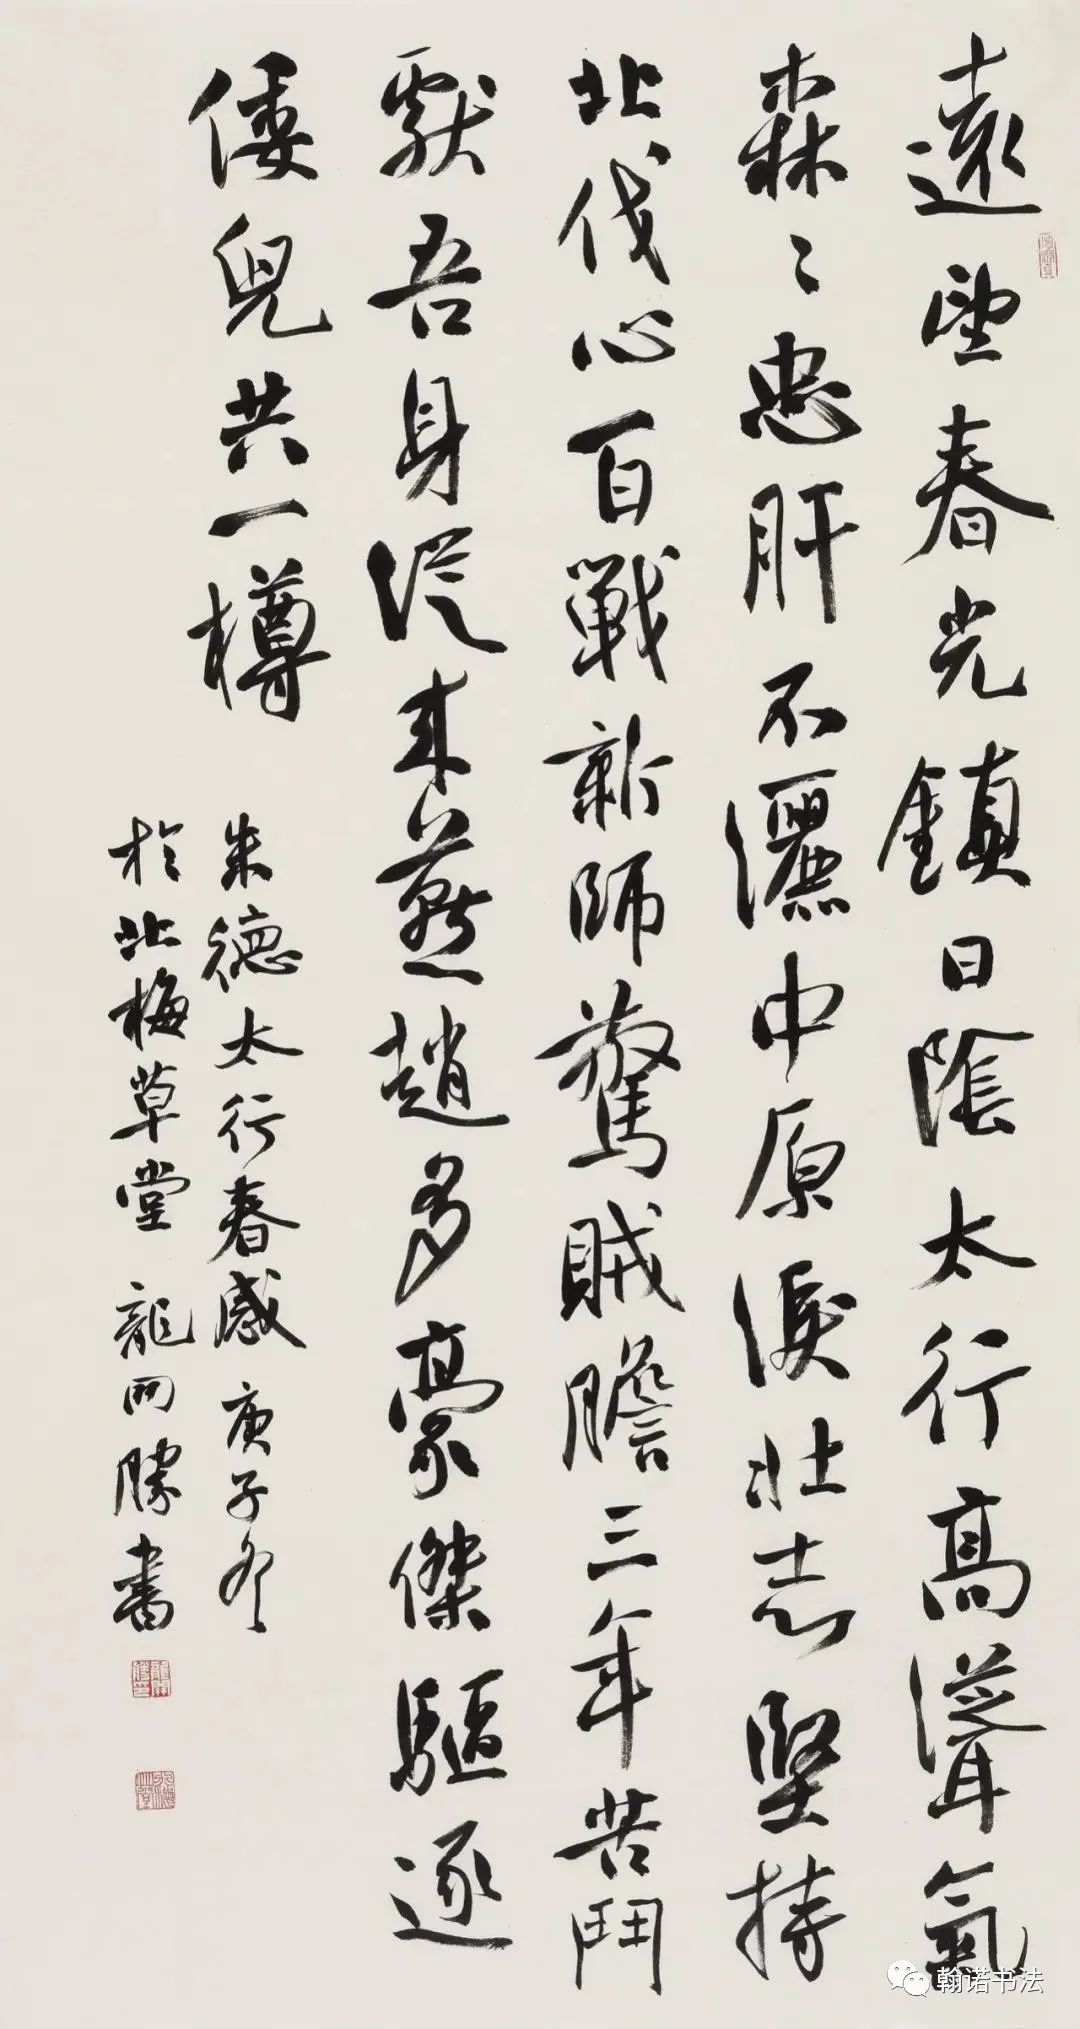 遠望春光鎮日陰太行高聳氣
森〻忠肝不灑中原淚壯志堅持
北伐心百戰新師驚賊膽三年苦鬥
獻吾身從來燕趙多豪傑驅逐
倭兒共一樽
朱德太行春感庚子冬
於北梅草堂龍開勝書
翰诺书法